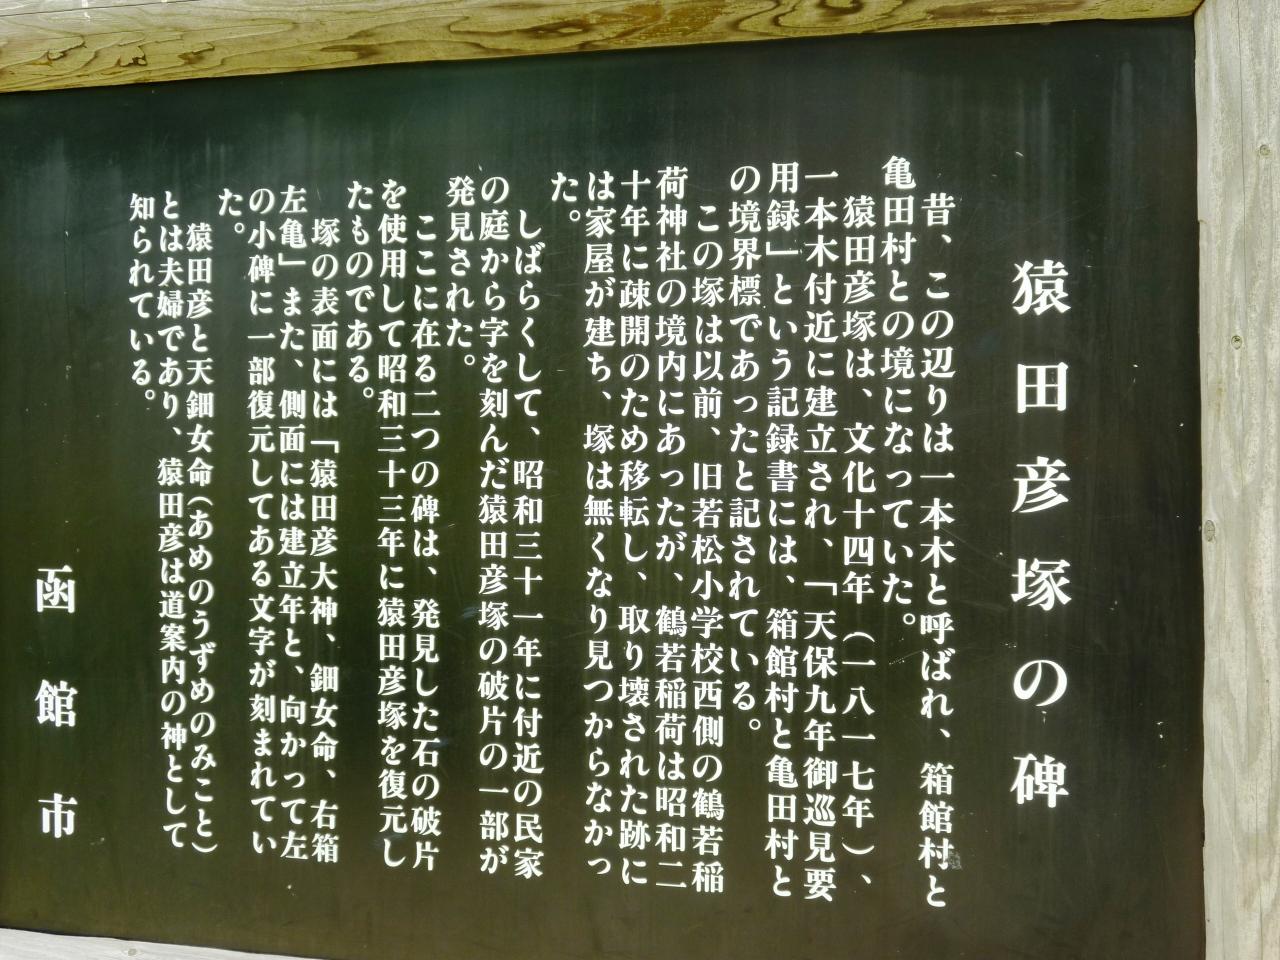 猿田彦塚の碑
昔、この辺りは一本木と呼ばれ、箱館村と
亀田村との境になっていた。
猿田彦塚は、文化十四年（一八一七年）、
一本木付近に建立され、「天保九年御巡見要
用録」という記録書には、箱館村と亀田村と
の境界標であったと記されている。
この塚は以前、旧若松小学校西側の鶴若稲
荷神社の境内にあったが、鶴若稲荷は昭和二
十年に疎開のため移転し、取り壊された跡に
は家屋が建ち、塚は無くなり見つからなかっ
た。
しばらくして、昭和三十一年に付近の民家
の庭から字を刻んだ猿田彦塚の破片の一部が
発見された。
ここに在る二つの碑は、発見した石の破片
を使用して昭和三十三年に猿田彦塚を復元し
たものである。
塚の表面には「猿田彦大神、鈿女命、右箱
左亀」また、側面には建立年と、向かって左
の小碑に一部復元してある文字が刻まれてい
た。
猿田彦と天鈿女命（あめのうずめのみこと）
とは夫婦であり、猿田彦は道案内の神として
知られている。
函館市